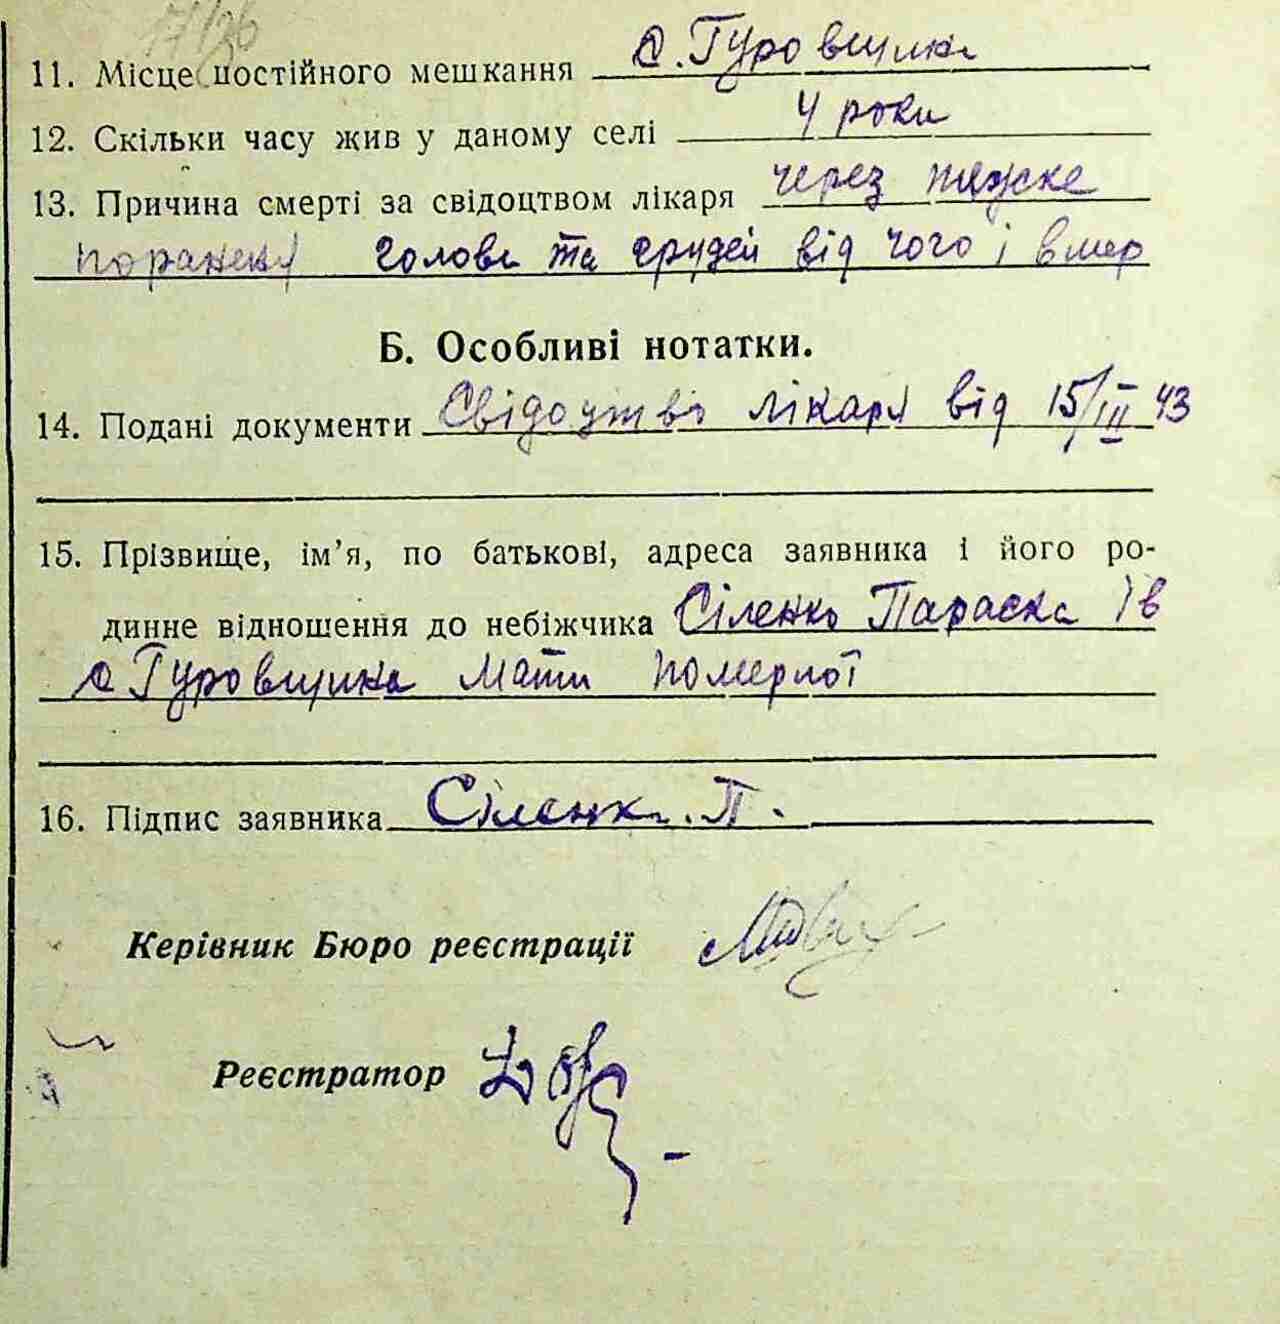 11. Місце постійного мешкання с. Гуровщина
12. Скільки часу жив у даному селі 4 роки
13. Причина смерті за свідоцтвом лікаря через тяжске
поранену голови та грудей від чого і вмер
Б. Особливі нотатки.
14. Подані документи Свідоцтво лікаря від 15/III 43
15. Прізвище, ім’я, по батькові, адреса заявника і його ро-
динне відношення до небіжчика Сіленко Параска Ів
с Гуровщина мати померлої
16. Підпис заявника Сіленко. П.
Керівник Бюро реєстрації
Реєстратор